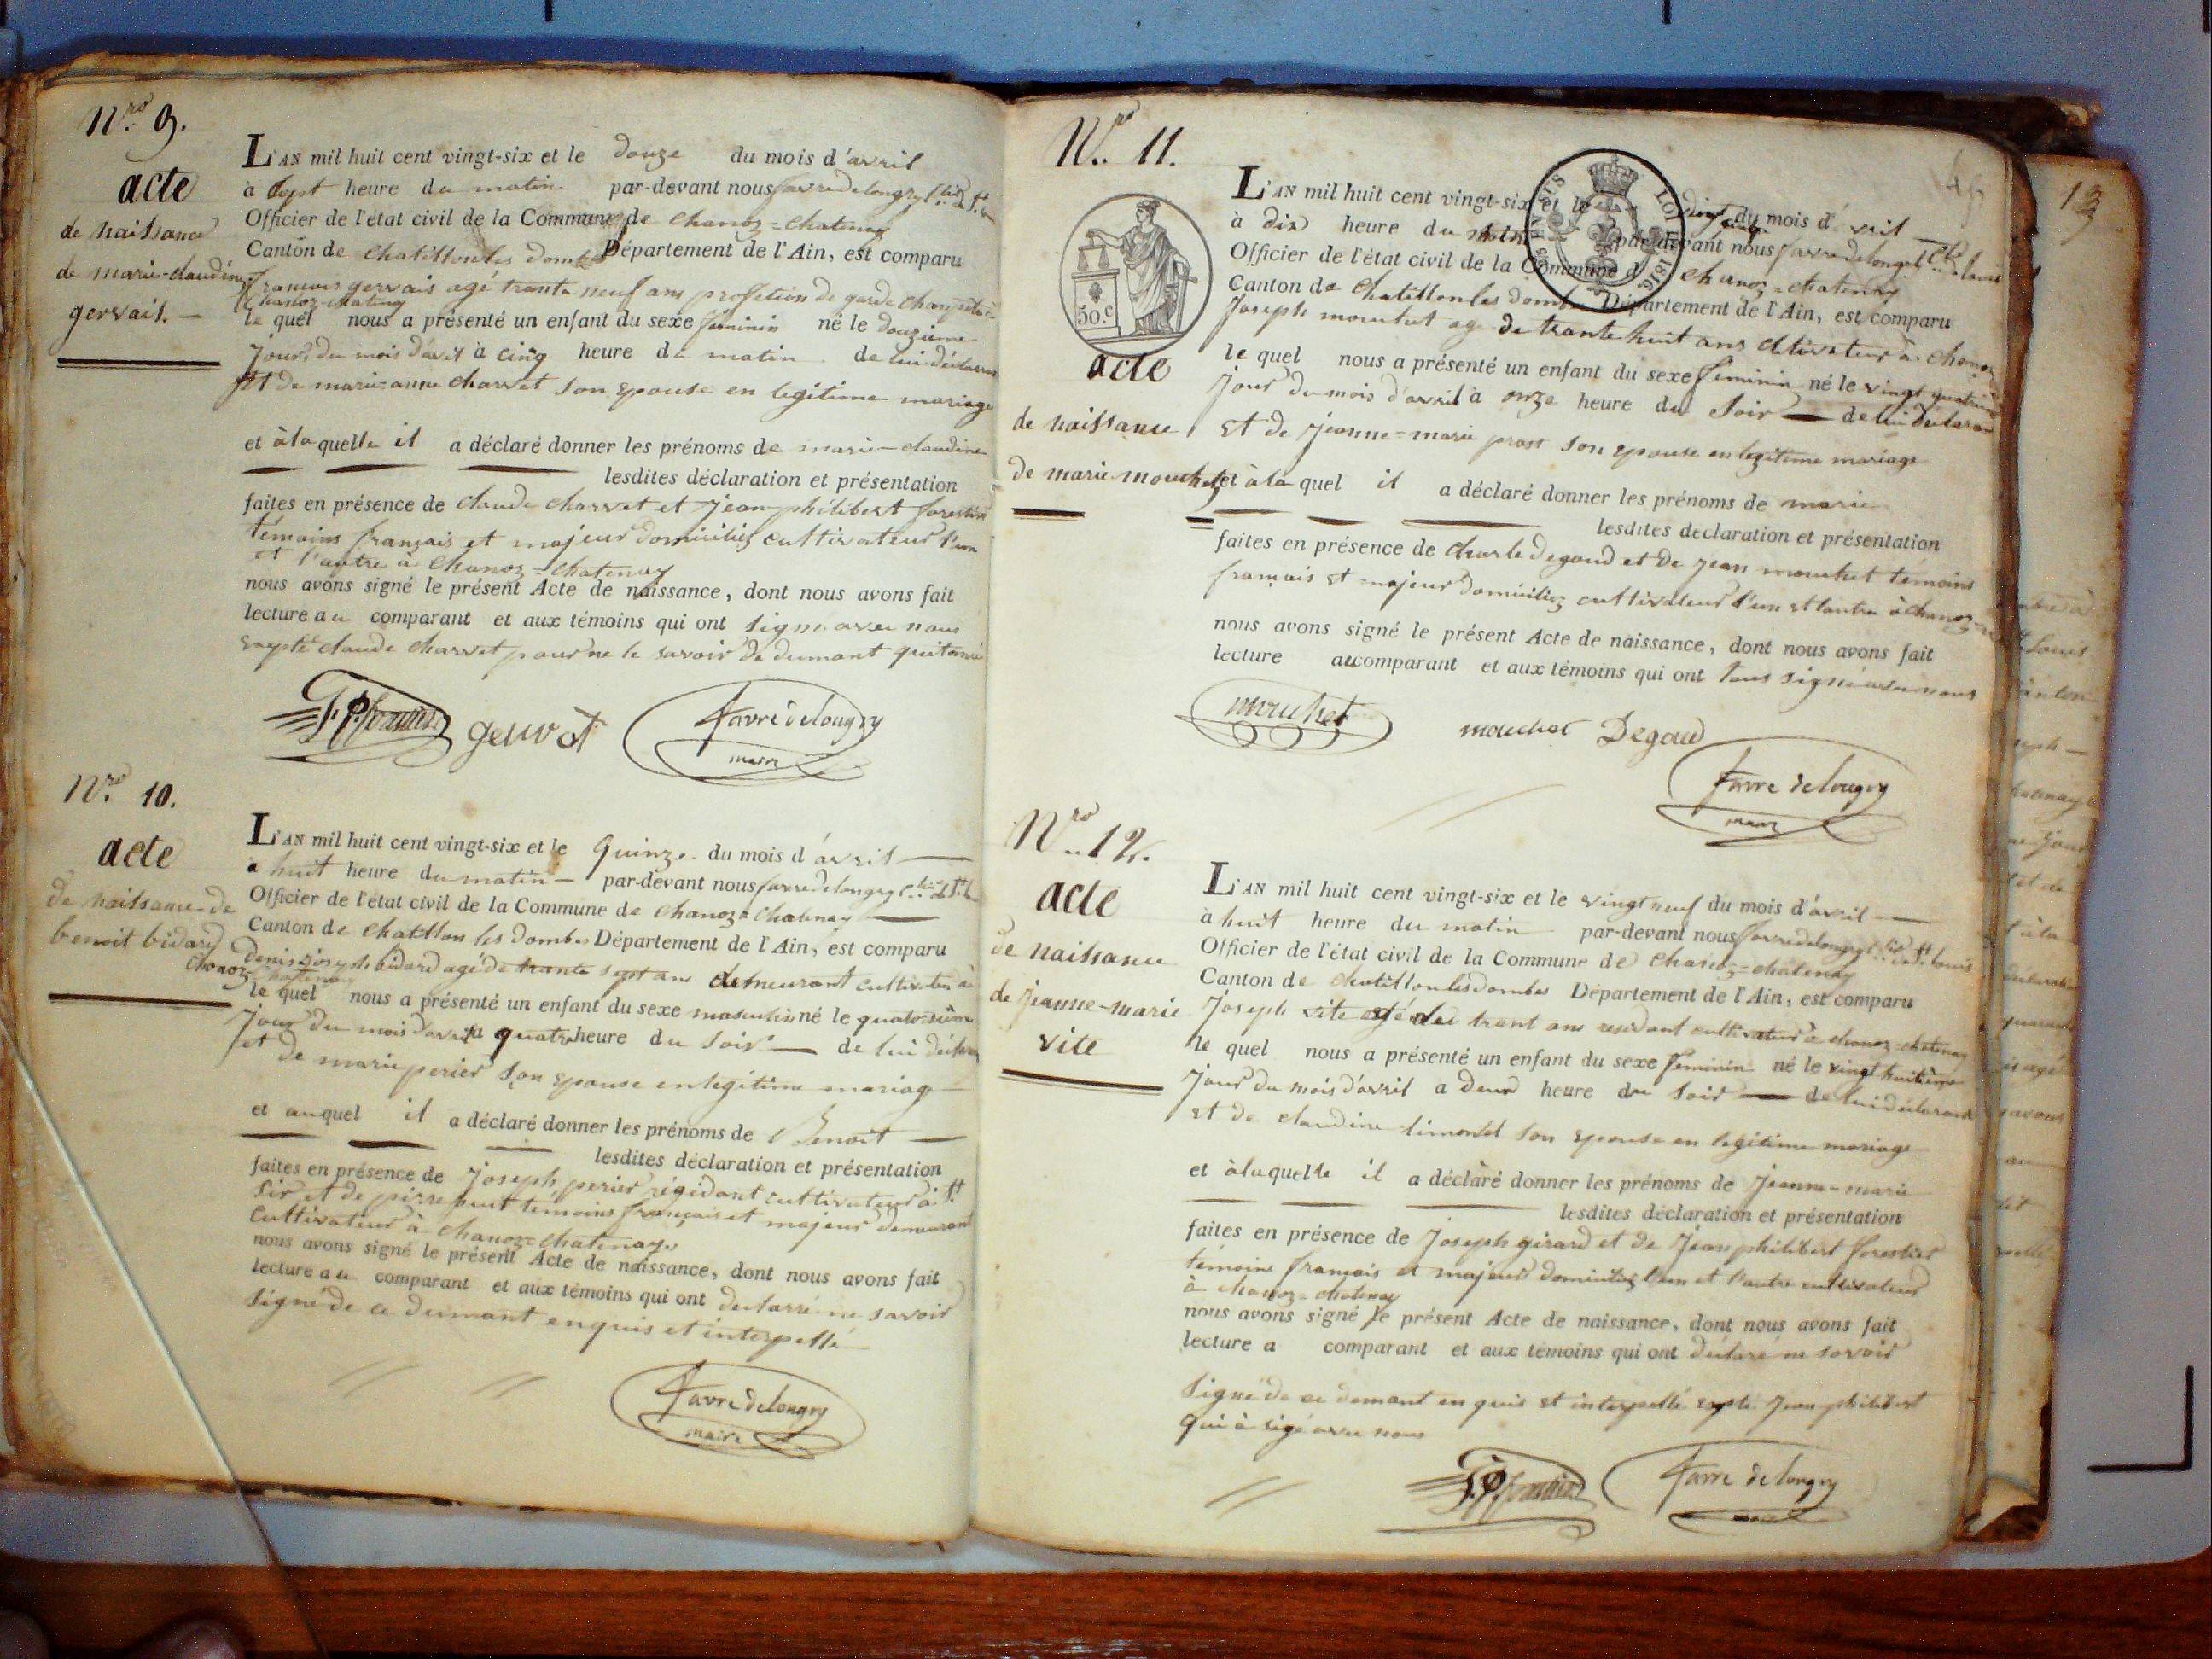 Nro 9.
acte
de naissance
de marie-claudine
gervais. —
L'AN mil huit cent vingt-six et le douze du mois d'avril
à sept heure du matin par-devant nous favre delongry
Officier de l'état civil de la Commune de Chanoz=Chatenay
Canton de Chatillon les dombes Département de l'Ain, est comparu
françois gervais agé trante neuf ans profetion de garde Champetre à
Chanoz-Chatenay
le quel nous a présenté un enfant du sexe feminin né le douzieme
jour du mois d'avril à cinq heure du matin de lui déclarant
et de marie-anne Charvet son epouse en legitime mariage
et à laquelle il a déclaré donner les prénoms de marie-claudine
lesdites déclaration et présentation
faites en présence de Claude Charvet et Jean philibert forestier
témoins français et majeur domiciliés cultivateur l'un
et l'autre à Chanoz=Chatenay
nous avons signé le présent Acte de naissance, dont nous avons fait
lecture au comparant et aux témoins qui ont signé avec nous
exepté claude Charvet pour ne le savoir de dumant
favre delongry
maire
Nro 10.
acte
de naissance de
benoit bidard
L'AN mil huit cent vingt-six et le Quinze du mois d'avril —
à huit heure du matin — par-devant nous favre delongry
Officier de l'état civil de la Commune de Chanoz=Chatenay —
Canton de Chatillon les dombes Département de l'Ain, est comparu
denis joseph bidard agé de trante sept ans demeurant cultivateur à
Chanoz Chatenay
le quel nous a présenté un enfant du sexe masculin né le quatorzième
jour du mois d'avril à quatre heure du soir — de lui déclarant
et de marie perier son epouse en legitime mariage
et auquel il a déclaré donner les prénoms de Benoit —
lesdites déclaration et présentation
faites en présence de joseph perier résidant cultivateur à St
Sir et de pierre témoins français et majeur demeurant
Cultivateur à Chanoz=Chatenay
nous avons signé le présent Acte de naissance, dont nous avons fait
lecture au comparant et aux témoins qui ont declarré ne savoir
signé de ce dumant enquis et interpellé
favre delongry
maire
Nro 11.
50.c
LOI 1816
acte
de naissance
de marie mouchet
L'AN mil huit cent vingt-six et le du mois d'avril
à dix heure du matin par-devant nous favre delongry
Officier de l'état civil de la Commune de Chanoz=Chatenay
Canton de Chatillon les dombes Département de l'Ain, est comparu
Joseph mouchet agé de trante huit ans cultivateur à Chanoz
le quel nous a présenté un enfant du sexe feminin né le vingt quatrième
jour du mois d'avril à onze heure du soir — de lui déclarant
et de jeanne=marie prost son epouse en legitime mariage
et à la quel il a déclaré donner les prénoms de marie
lesdites déclaration et présentation
faites en présence de Charle Degoud et de jean mouchet témoins
français et majeur domiciliez cultivateur l'un et lautre à Chanoz
nous avons signé le présent Acte de naissance, dont nous avons fait
lecture au comparant et aux témoins qui ont tous signé avec nous
mouchet
mouchet Degoud
favre delongry
maire
Nro 12.
acte
de naissance
de jeanne-marie
vite
L'AN mil huit cent vingt-six et le vingt neuf du mois d'avril —
à huit heure du matin par-devant nous favre delongry
Officier de l'état civil de la Commune de Chanoz=Chatenay
Canton de Chatillon les dombes Département de l'Ain, est comparu
Joseph vite agé de trent ans residant cultivateur à chanoz-chatenay
le quel nous a présenté un enfant du sexe feminin né le vingt huitième
jour du mois d'avril a deux heure du soir — de lui déclarant
et de claudine limondet son epouse en legitime mariage
et à laquelle il a déclaré donner les prénoms de Jeanne-marie
lesdites déclaration et présentation
faites en présence de Joseph girard et de Jean philibert forestier
témoins français et majeur domiciliez l'un et l'autre cultivateur
à chanoz=chatenay
nous avons signé le présent Acte de naissance, dont nous avons fait
lecture a comparant et aux témoins qui ont déclaré ne savoir
signé de ce dumant enquis et interpellé exepté Jean philibert
qui à signé avec nous
favre delongry